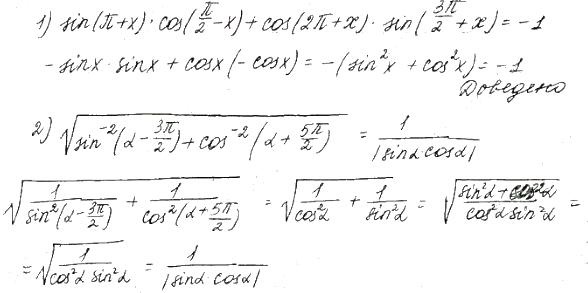 1) sin(π+x)·cos(π/2-x)+cos(2π+x)·sin(3π/2+x)=-1
-sinx·sinx+cosx(-cosx)=-(sin²x+cos²x)=-1
Доведено
2) √(sin⁻²(α-3π/2)+cos⁻²(α+5π/2)) = 1/|sinα·cosα|
√(1/sin²(α-3π/2) + 1/cos²(α+5π/2)) = √(1/cos²α + 1/sin²α) = √((sin²α+cos²α)/(cos²α sin²α)) =
= √(1/(cos²α sin²α)) = 1/|sinα cosα|